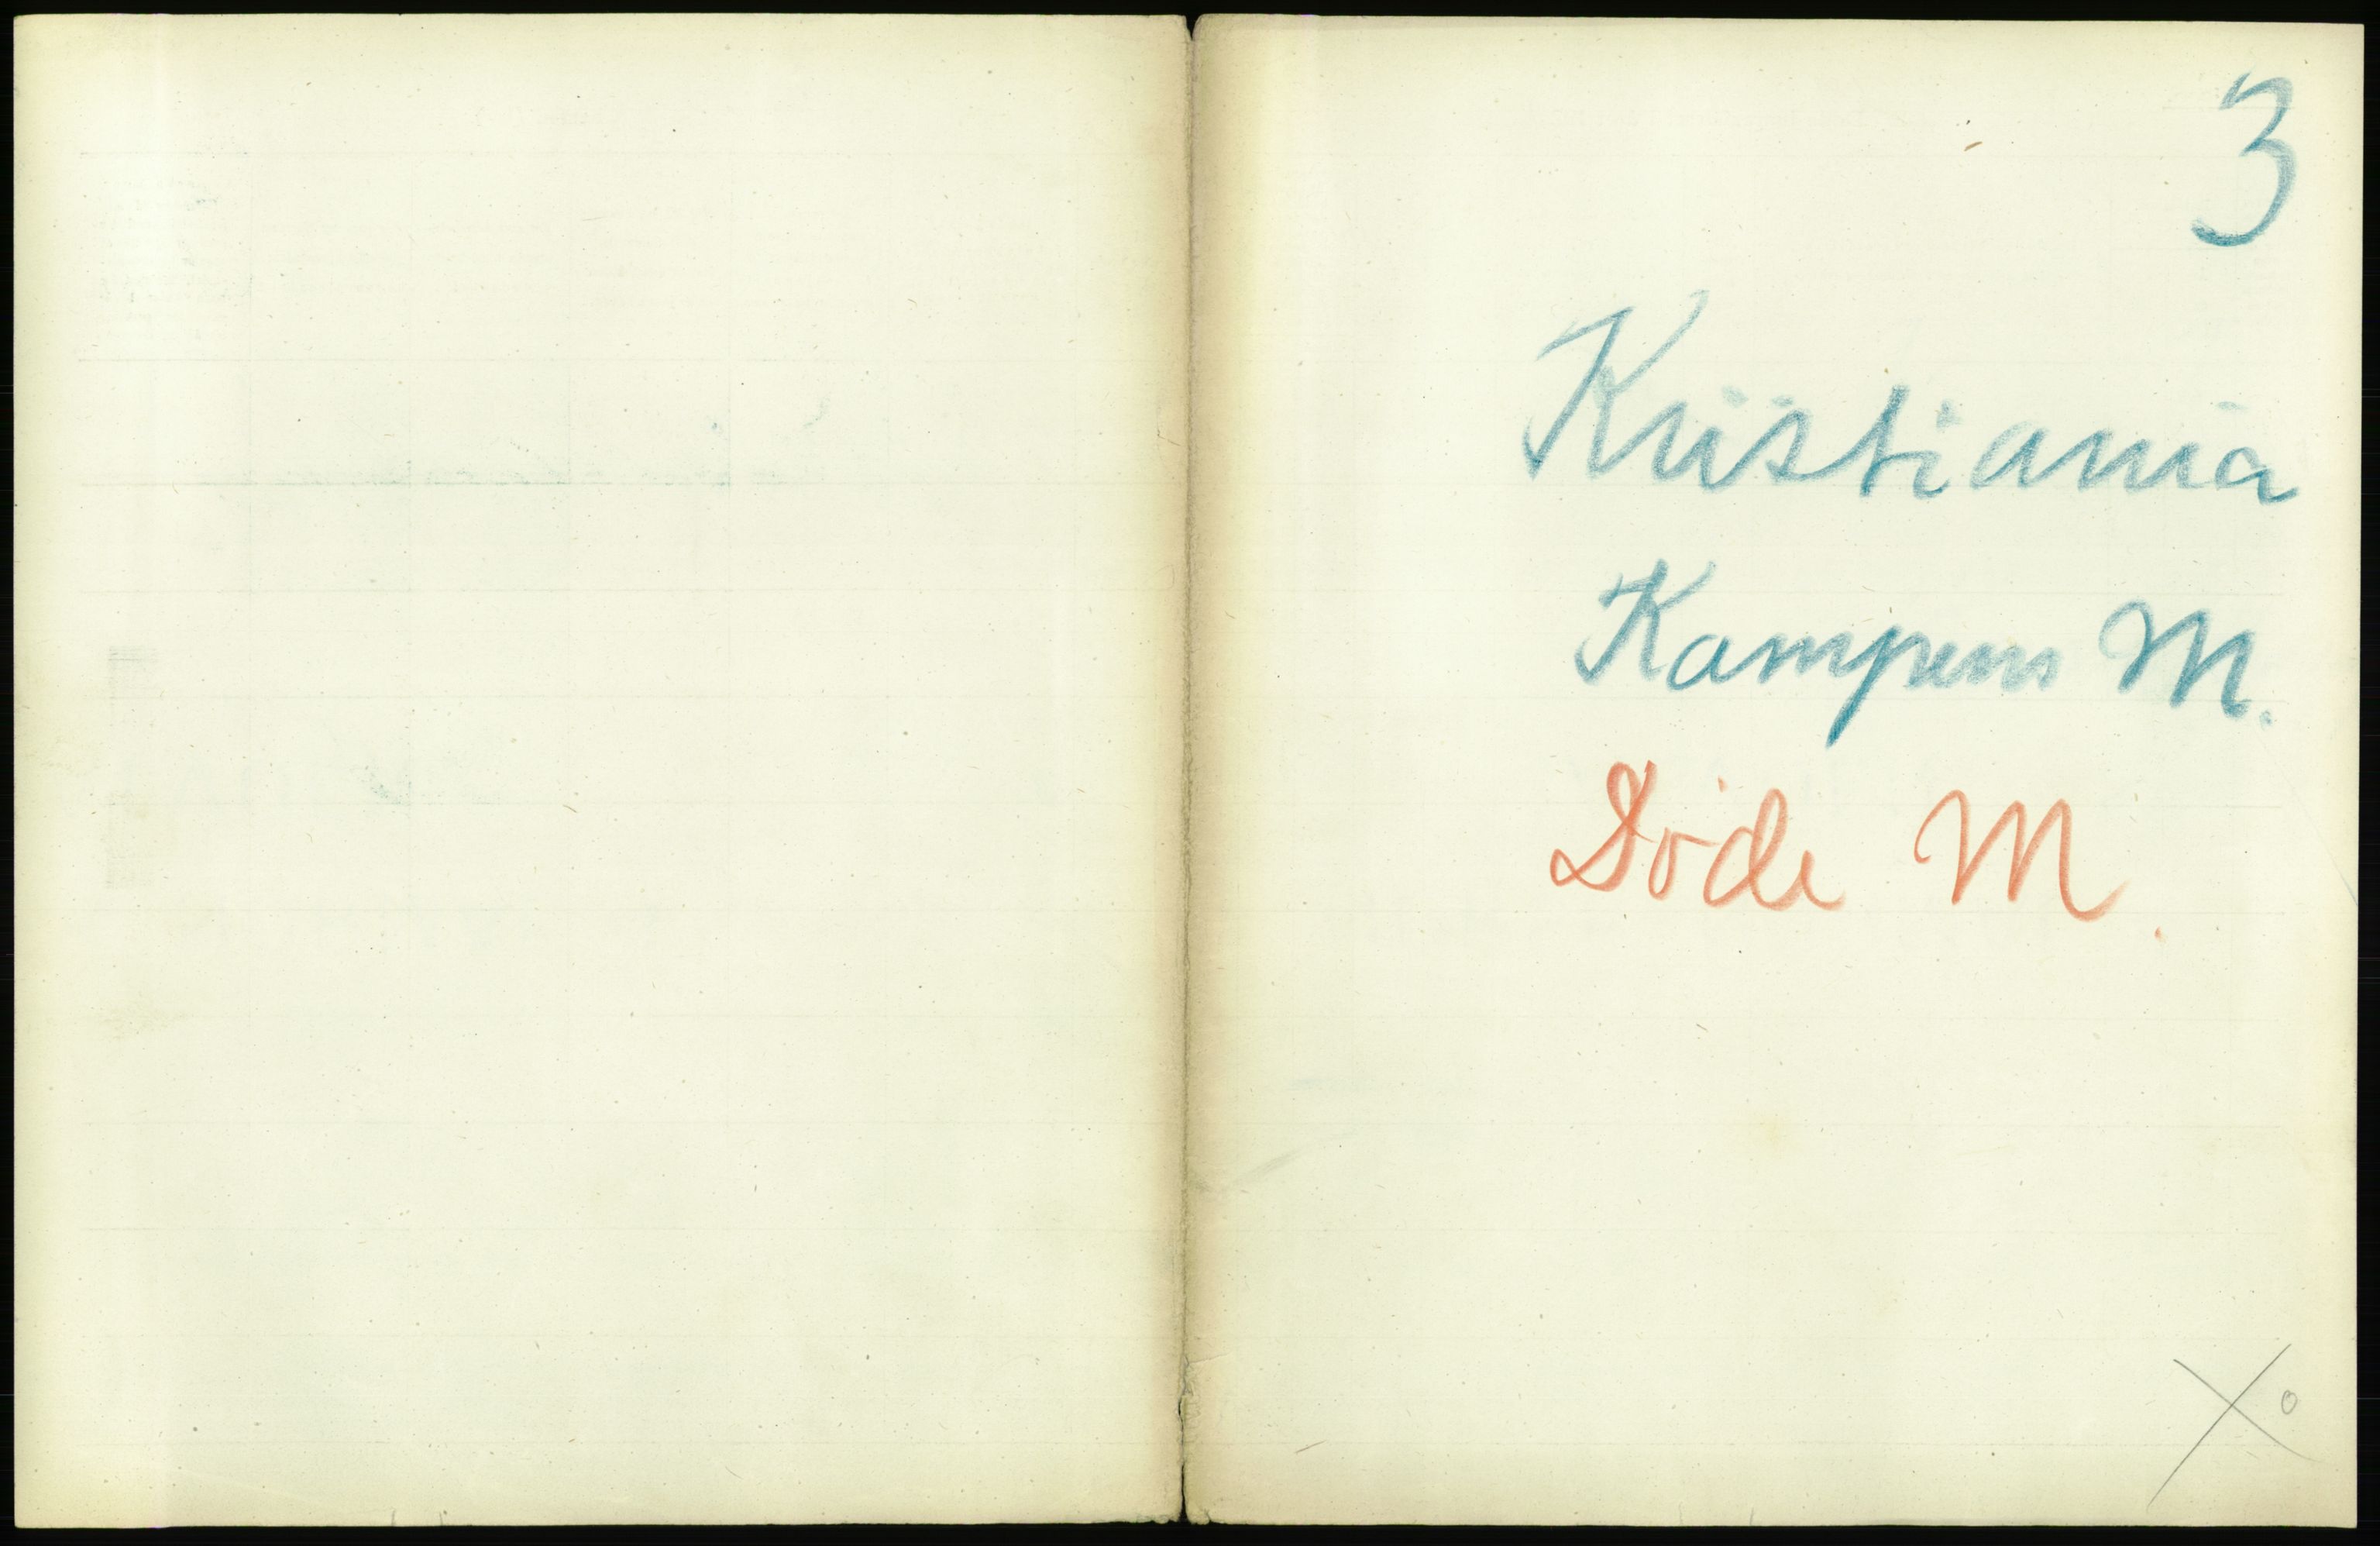 3
Kristiania
Kampens M.
Döde M.